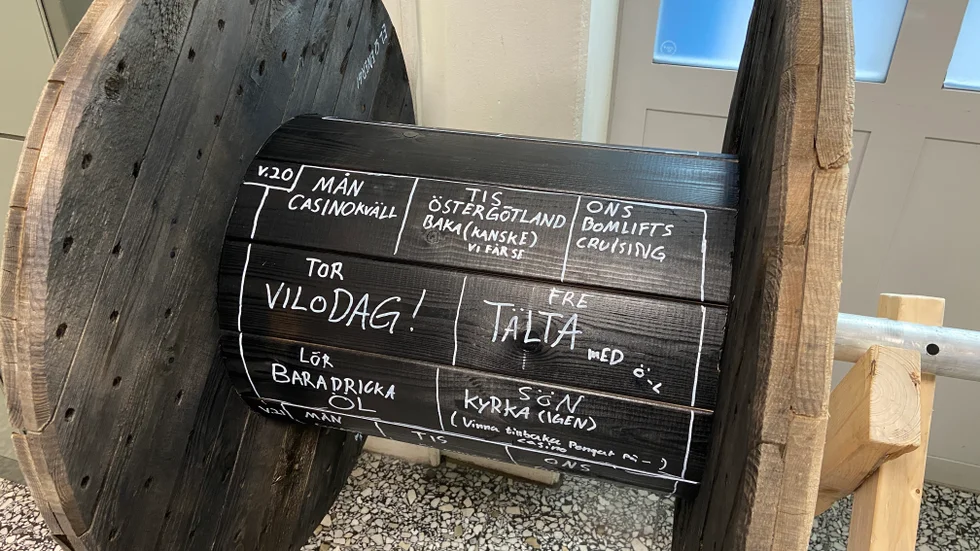 V.20
MÅN
CASINOKVÄLL
TIS
ÖSTERGÖTLAND
BAKA (KANSKE)
VI FÅR SE
ONS
BOMLIFTS
CRUISING
TOR
VILODAG!
FRE
TÄLTA
MED
LÖR
BARA DRICKA
ÖL
SÖN
KYRKA (IGEN)
(Vinna tillbaka Pengar På
casino
V.21
MÅN
TIS
ONS